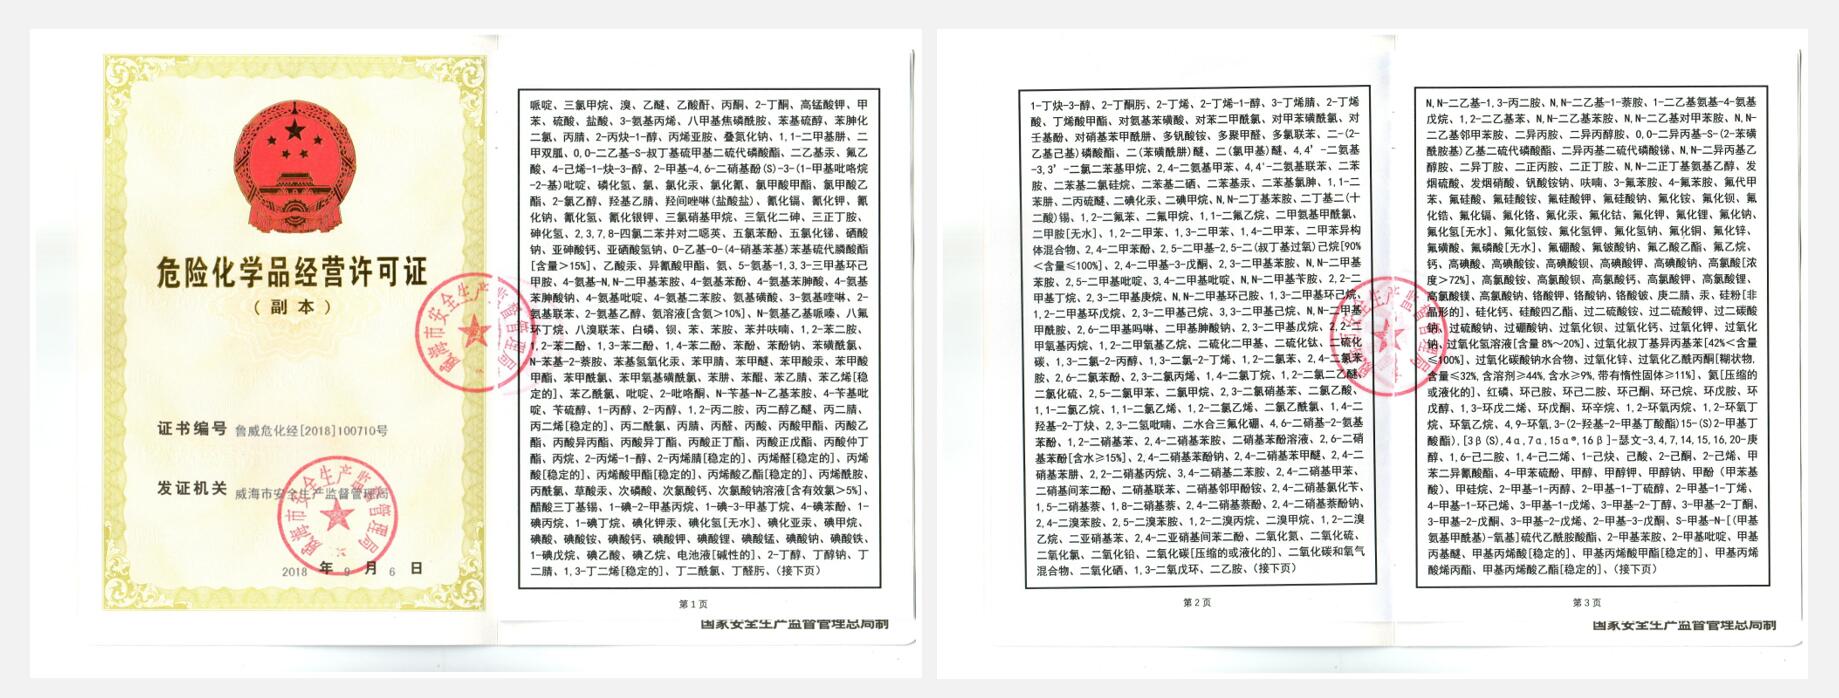 危险化学品经营许可证
(副本)
证书编号 鲁威危化经[2018]100710号
发证机关 威海市安全生产监督管理局
2018 年 9 月 6 日
威海市安全生产监督管理局
哌啶、三氯甲烷、溴、乙醚、乙酸酐、丙酮、2-丁酮、高锰酸钾、甲
苯、硫酸、盐酸、3-氨基丙烯、八甲基焦磷酰胺、苯基硫醇、苯胂化
二氯、丙腈、2-丙炔-1-醇、丙烯亚胺、叠氮化钠、1,1-二甲基肼、二
甲双胍、O,O-二乙基-S-叔丁基硫甲基二硫代磷酸酯、二乙基汞、氟乙
酸、4-己烯-1-炔-3-醇、2-甲基-4,6-二硝基酚(S)-3-(1-甲基吡咯烷
-2-基)吡啶、磷化氢、氯、氯化汞、氯化氰、氯甲酸甲酯、氯甲酸乙
酯、2-氯乙醇、羟基乙腈、羟间唑啉(盐酸盐)、氰化镉、氰化钾、氰
化钠、氰化氢、氰化银钾、三氯硝基甲烷、三氧化二砷、三正丁胺、
砷化氢、2,3,7,8-四氯二苯并对二噁英、五氯苯酚、五氯化锑、硒酸
钠、亚砷酸钙、亚硒酸氢钠、O-乙基-O-(4-硝基苯基)苯基硫代膦酸酯
[含量>15%]、乙酸汞、异氰酸甲酯、氨、5-氨基-1,3,3-三甲基环己
甲胺、4-氨基-N,N-二甲基苯胺、4-氨基苯酚、4-氨基苯胂酸、4-氨基
苯胂酸钠、4-氨基吡啶、4-氨基二苯胺、氨基磺酸、3-氨基喹啉、2-
氨基联苯、2-氨基乙醇、氨溶液[含氨>10%]、N-氨基乙基哌嗪、八氟
环丁烷、八溴联苯、白磷、钡、苯、苯胺、苯并呋喃、1,2-苯二胺、
1,2-苯二酚、1,3-苯二酚、1,4-苯二酚、苯酚、苯酚钠、苯磺酰氯、
N-苯基-2-萘胺、苯基氢氧化汞、苯甲腈、苯甲醚、苯甲酸汞、苯甲酸
甲酯、苯甲酰氯、苯甲氧基磺酰氯、苯肼、苯醌、苯乙腈、苯乙烯[稳
定的]、苯乙酰氯、吡啶、2-吡咯酮、N-苄基-N-乙基苯胺、4-苄基吡
啶、苄硫醇、1-丙醇、2-丙醇、1,2-丙二胺、丙二醇乙醚、丙二腈、
丙二烯[稳定的]、丙二酰氯、丙腈、丙醛、丙酸、丙酸甲酯、丙酸乙
酯、丙酸异丙酯、丙酸异丁酯、丙酸正丁酯、丙酸正戊酯、丙酸仲丁
酯、丙烷、2-丙烯-1-醇、2-丙烯腈[稳定的]、丙烯醛[稳定的]、丙烯
酸[稳定的]、丙烯酸甲酯[稳定的]、丙烯酸乙酯[稳定的]、丙烯酰胺、
丙酰氯、草酸汞、次磷酸、次氯酸钙、次氯酸钠溶液[含有效氯>5%]、
醋酸三丁基锡、1-碘-2-甲基丙烷、1-碘-3-甲基丁烷、4-碘苯酚、1-
碘丙烷、1-碘丁烷、碘化钾汞、碘化氢[无水]、碘化亚汞、碘甲烷、
碘酸、碘酸铵、碘酸钙、碘酸钾、碘酸锂、碘酸锰、碘酸钠、碘酸铁、
1-碘戊烷、碘乙酸、碘乙烷、电池液[碱性的]、2-丁醇、丁醇钠、丁
二腈、1,3-丁二烯[稳定的]、丁二酰氯、丁醛肟、(接下页)
第 1 页
国家安全生产监督管理总局制
1-丁炔-3-醇、2-丁酮肟、2-丁烯、2-丁烯-1-醇、3-丁烯腈、2-丁烯
酸、丁烯酸甲酯、对氨基苯磺酸、对苯二甲酰氯、对甲苯磺酰氯、对
壬基酚、对硝基苯甲酰肼、多钒酸铵、多聚甲醛、多氯联苯、二-(2-
乙基己基)磷酸酯、二(苯磺酰肼)醚、二(氯甲基)醚、4,4'-二氨基
-3,3'-二氯二苯基甲烷、2,4-二氨基甲苯、4,4'-二氨基联苯、二苯
胺、二苯基二氯硅烷、二苯基二硒、二苯基汞、二苯基氯胂、1,1-二
苯肼、二丙硫醚、二碘化汞、二碘甲烷、N,N-二丁基苯胺、二丁基二(十
二酸)锡、1,2-二氟苯、二氟甲烷、1,1-二氟乙烷、二甲氨基甲酰氯、
二甲胺[无水]、1,2-二甲苯、1,3-二甲苯、1,4-二甲苯、二甲苯异构
体混合物、2,4-二甲苯酚、2,5-二甲基-2,5-二(叔丁基过氧)己烷[90%
<含量≤100%]、2,4-二甲基-3-戊酮、2,3-二甲基苯胺、N,N-二甲基
苯胺、2,5-二甲基吡啶、3,4-二甲基吡啶、N,N-二甲基苄胺、2,2-二
甲基丁烷、2,3-二甲基庚烷、N,N-二甲基环己胺、1,3-二甲基环己烷、
1,2-二甲基环戊烷、2,3-二甲基己烷、3,3-二甲基己烷、N,N-二甲基
甲酰胺、2,6-二甲基吗啉、二甲基胂酸钠、2,3-二甲基戊烷、2,2-二
甲氧基丙烷、1,2-二甲氧基乙烷、二硫化二甲基、二硫化钛、二硫化
碳、1,3-二氯-2-丙醇、1,3-二氯-2-丁烯、1,2-二氯苯、2,4-二氯苯
胺、2,6-二氯苯酚、2,3-二氯丙烯、1,4-二氯丁烷、1,2-二氯二乙醚、
二氯化硫、2,5-二氯甲苯、二氯甲烷、2,3-二氯硝基苯、二氯乙酸、
1,1-二氯乙烷、1,1-二氯乙烯、1,2-二氯乙烯、二氯乙酰氯、1,4-二
羟基-2-丁炔、2,3-二氢吡喃、二水合三氟化硼、4,6-二硝基-2-氨基
苯酚、1,2-二硝基苯、2,4-二硝基苯胺、二硝基苯酚溶液、2,6-二硝
基苯酚[含水≥15%]、2,4-二硝基苯酚钠、2,4-二硝基苯甲醚、2,4-二
硝基苯肼、2,2-二硝基丙烷、3,4-二硝基二苯胺、2,4-二硝基甲苯、
二硝基间苯二酚、二硝基联苯、二硝基邻甲酚铵、2,4-二硝基氯化苄、
1,5-二硝基萘、1,8-二硝基萘、2,4-二硝基萘酚、2,4-二硝基萘酚钠、
2,4-二溴苯胺、2,5-二溴苯胺、1,2-二溴丙烷、二溴甲烷、1,2-二溴
乙烷、二亚硝基苯、2,4-二亚硝基间苯二酚、二氧化氮、二氧化硫、
二氧化氯、二氧化铅、二氧化碳[压缩的或液化的]、二氧化碳和氧气
混合物、二氧化硒、1,3-二氧戊环、二乙胺、(接下页)
第 2 页
N,N-二乙基-1,3-丙二胺、N,N-二乙基-1-萘胺、1-二乙基氨基-4-氨基
戊烷、1,2-二乙基苯、N,N-二乙基苯胺、N,N-二乙基对甲苯胺、N,N-
二乙基邻甲苯胺、二异丙胺、二异丙醇胺、O,O-二异丙基-S-(2-苯磺
酰胺基)乙基二硫代磷酸酯、二异丙基二硫代磷酸锑、N,N-二异丙基乙
醇胺、二异丁胺、二正丙胺、二正丁胺、N,N-二正丁基氨基乙醇、发
烟硫酸、发烟硝酸、钒酸铵钠、呋喃、3-氟苯胺、4-氟苯胺、氟代甲
苯、氟硅酸、氟硅酸铵、氟硅酸钾、氟硅酸钠、氟化铵、氟化钡、氟
化锆、氟化镉、氟化铬、氟化汞、氟化钴、氟化钾、氟化锂、氟化钠、
氟化氢[无水]、氟化氢铵、氟化氢钾、氟化氢钠、氟化铜、氟化锌、
氟磺酸、氟磷酸[无水]、氟硼酸、氟铍酸钠、氟乙酸乙酯、氟乙烷、
钙、高碘酸、高碘酸铵、高碘酸钡、高碘酸钾、高碘酸钠、高氯酸[浓
度>72%]、高氯酸铵、高氯酸钡、高氯酸钙、高氯酸钾、高氯酸锂、
高氯酸镁、高氯酸钠、铬酸钾、铬酸钠、铬酸铍、庚二腈、汞、硅粉[非
晶形的]、硅化钙、硅酸四乙酯、过二硫酸铵、过二硫酸钾、过二碳酸
钠、过硫酸钠、过硼酸钠、过氧化钡、过氧化钙、过氧化钾、过氧化
钠、过氧化氢溶液[含量8%~20%]、过氧化叔丁基异丙基苯[42%<含量
≤100%]、过氧化碳酸钠水合物、过氧化锌、过氧化乙酰丙酮[糊状物,
含量≤32%,含溶剂≥44%,含水≥9%,带有惰性固体≥11%]、氦[压缩的
或液化的]、红磷、环己胺、环己二胺、环己酮、环己烷、环戊胺、环
戊醇、1,3-环戊二烯、环戊酮、环辛烷、1,2-环氧丙烷、1,2-环氧丁
烷、环氧乙烷、4,9-环氧,3-(2-羟基-2-甲基丁酸酯)15-(S)2-甲基丁
酸酯),[3β(S),4α,7α,15α®,16β]-瑟文-3,4,7,14,15,16,20-庚
醇、1,6-己二胺、1,4-己二烯、1-己炔、己酸、2-己酮、2-己烯、甲
苯二异氰酸酯、4-甲苯硫酚、甲醇、甲醇钾、甲醇钠、甲酚（甲苯基
酸）、甲硅烷、2-甲基-1-丙醇、2-甲基-1-丁硫醇、2-甲基-1-丁烯、
4-甲基-1-环己烯、3-甲基-1-戊烯、3-甲基-2-丁醇、3-甲基-2-丁酮、
3-甲基-2-戊酮、3-甲基-2-戊烯、2-甲基-3-戊酮、S-甲基-N-[(甲基
氨基甲酰基)-氧基]硫代乙酰胺酸酯、2-甲基苯胺、2-甲基吡啶、甲基
丙基醚、甲基丙烯酸[稳定的]、甲基丙烯酸甲酯[稳定的]、甲基丙烯
酸烯丙酯、甲基丙烯酸乙酯[稳定的]、(接下页)
第 3 页
国家安全生产监督管理总局制